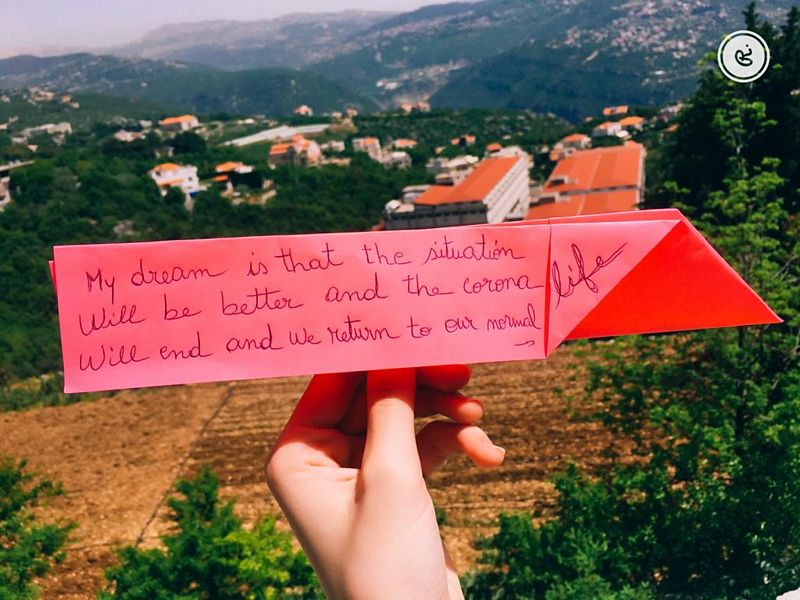 My dream is that the situation
Will be better and the corona
Will end and we return to our normal
→
life